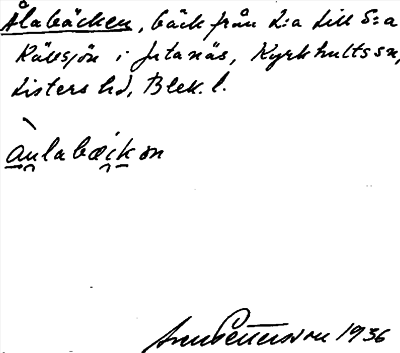 Ålabäcken, bäck från L:a till S:a
Kävsjön i Jutanäs, Kyrkhultssn,
Listers hd, Blek. l.
au̯labæi̯kɔn
Sven Pettersson 1936